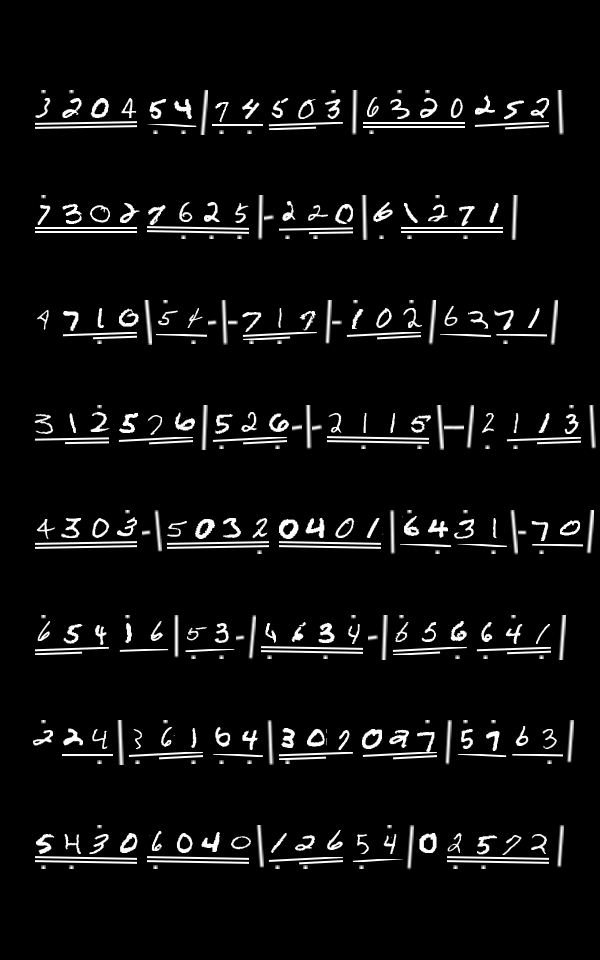 3 2 0 4 5 4 | 7 4 5 0 3 | 6 3 2 0 2 5 2 |
7 3 0 2 7 6 2 5 | - 2 2 0 | 6 1 2 7 1 |
4 7 1 0 | 5 4 - | - 7 1 7 | - 1 0 2 | 6 3 7 1 |
3 1 2 5 7 6 | 5 2 6 - | - 2 1 1 5 | - | 2 1 1 3 |
4 3 0 3 - | 5 0 3 2 0 4 0 1 | 6 4 3 1 | - 7 0 |
6 5 4 1 6 | 5 3 - | 4 6 3 4 - | 6 5 6 6 4 1 |
2 2 4 | 3 6 1 6 4 | 3 0 7 0 2 7 | 5 7 6 3 |
5 4 3 0 6 0 4 0 | 1 2 6 5 4 | 0 2 5 7 2 |